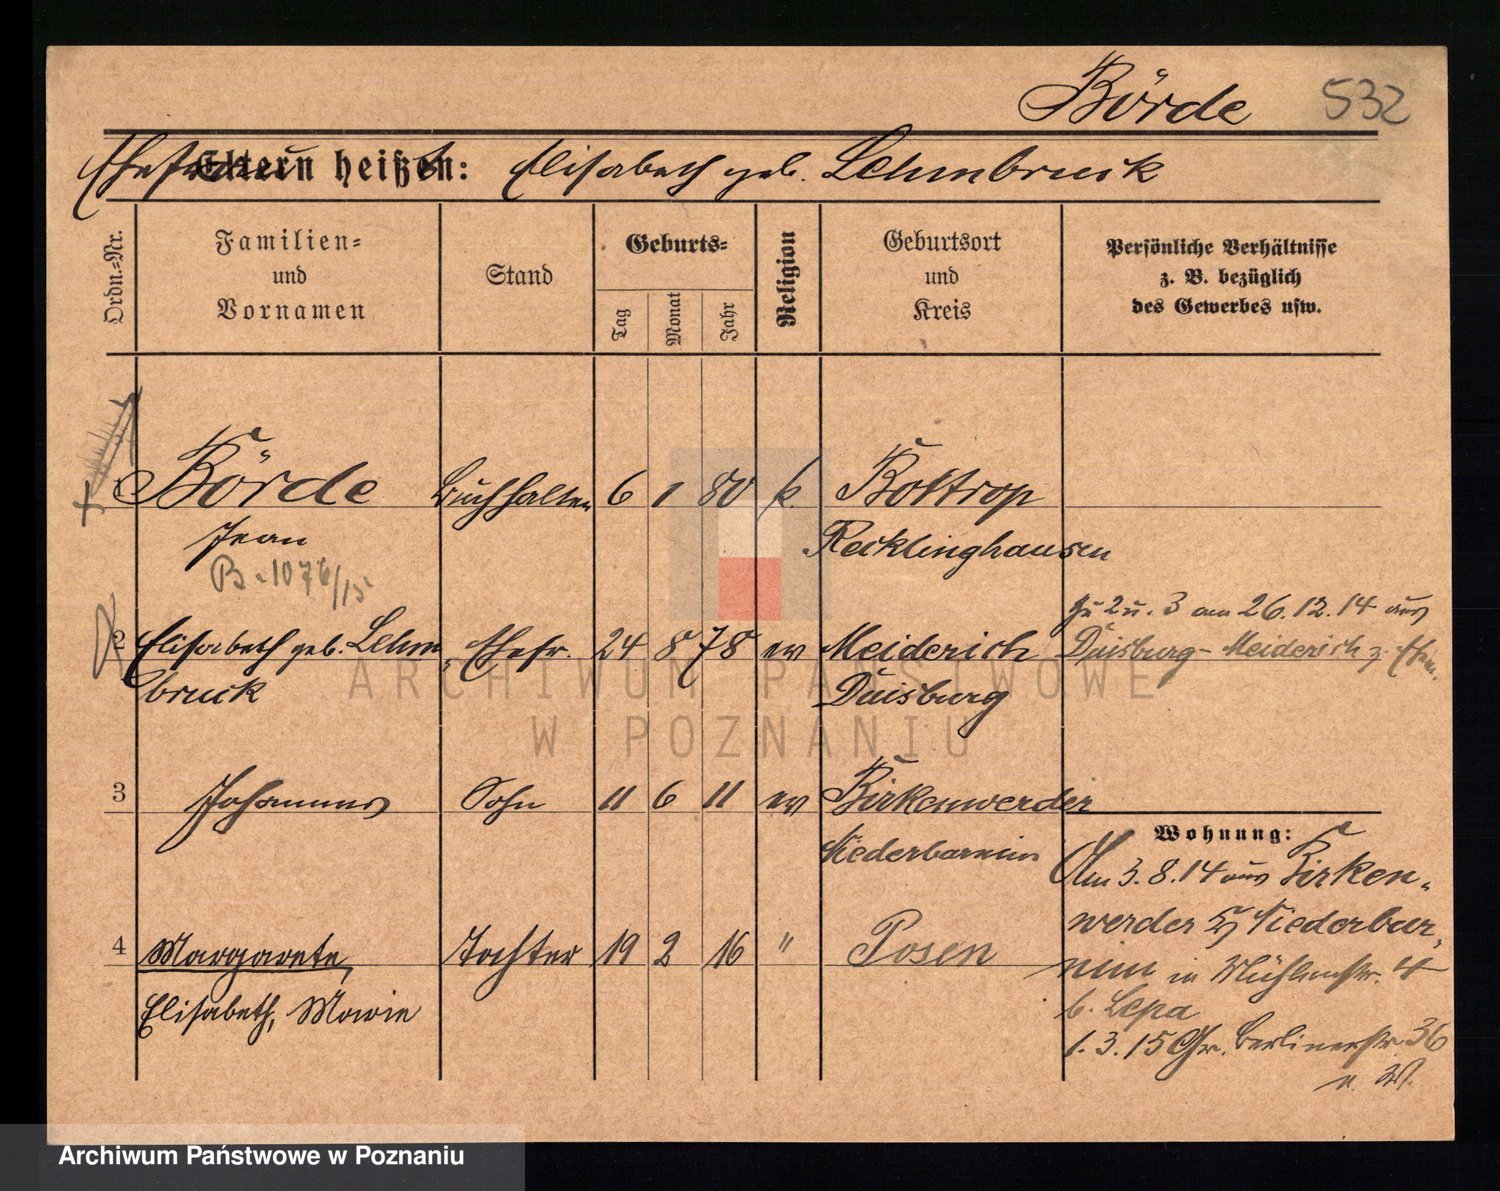 Börde 532
Ehefrau
Eltern heißen: Elisabeth geb. Lehmbruck
Ordn.=Nr.
Familien=
und
Vornamen
Stand
Geburts=
Tag
Monat
Jahr
Religion
Geburtsort
und
Kreis
Persönliche Verhältnisse
z. B. bezüglich
des Gewerbes usw.
Börde Buchhalter 6 1 80 k. Bottrop
Jean Recklinghausen
B. 1076/15
zu 2 u. 3 am 26.12.14 aus
2 Elisabeth geb. Lehm- Ehefr. 24 8 78 ev Meiderich Duisburg-Meiderich z.
bruck Duisburg
3 Johannes Sohn 11 6 11 ev Birkenwerder
Niederbarnim
Wohnung:
Am 3.8.14 aus Birken-
werder Niederbar-
4 Margarete, Tochter 19 2 16 " Posen
nim in Mühlenstr. 4
Elisabeth, Marie
b. Lepa
1.3.15 Gr. Berlinerstr 36
ARCHIWUM PAŃSTWOWE
W POZNANIU
Archiwum Państwowe w Poznaniu